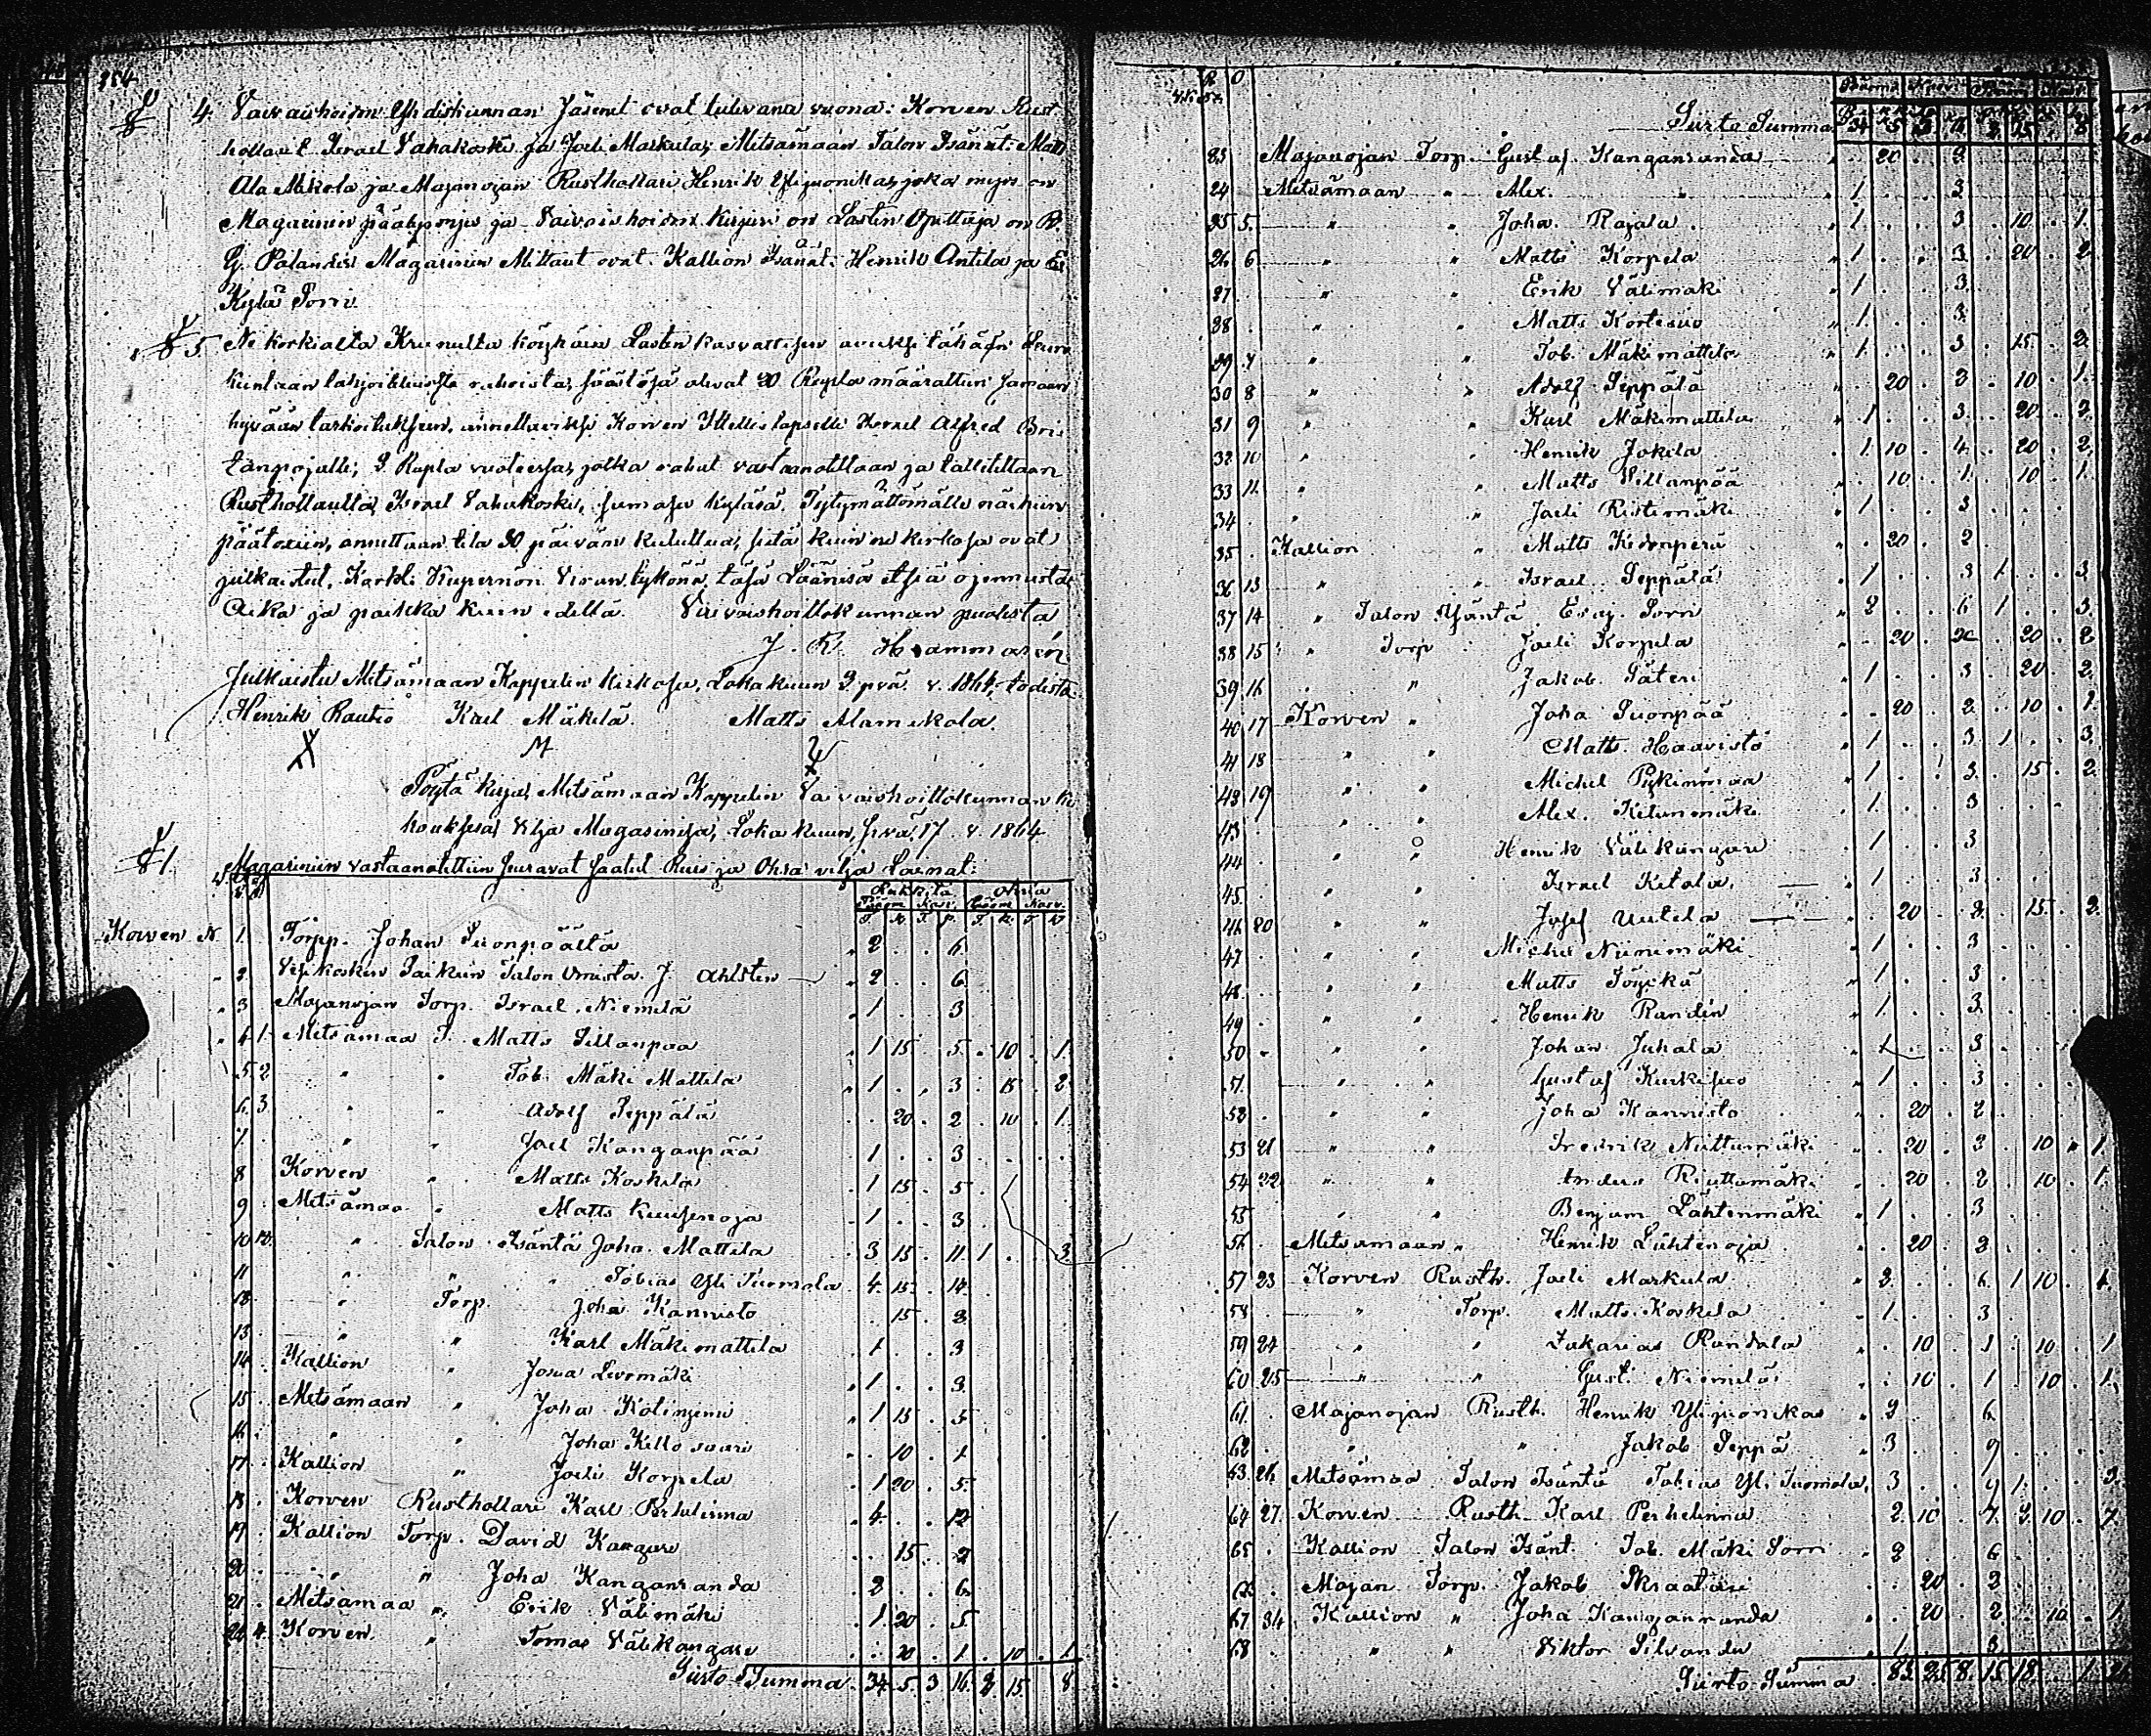 354
§ 4. Vaivaishoidon Yhdiskunnan Jäsenet ovat tulevana vuona: Korven Rust-
hollarit Israel Vahakoski ja Joeli Markula; Mitsämaan Talon Isänät: Matts
Ala Mikola ja Majanojan Rusthollari Henrik Ylijuonikas, joka myös on
Magasinin päälysmies ja Vaivaishoidon kirjuri on Lasten Opettaja on R.
G. Polander Magasinin Mittarit ovat Kallion Isänät: Henrik Antila ja
Kylä Sorri
§ 5. Ne korkialta Kruunulta köyhäin Lasten kasvattisen avuksi tähän Seura
kuntaan lahjoitetuista rahoista, säästösä olevat 20 Rupla määrättiin samaan
hyvään tarkoitukseen, annettaviksi Korven Ylellis lapselle Israel Alfred
poijalle; 2 Rupla vuoteesa, jotka rahat vastaanotetaan ja tallitetaan
Rusthollarilta, Israel Vahakoski, samasa kyläsä. Tytymättömälle näihin
päätöxiin, annettaan tila 30 päivän kuluttua, siitä kuin ne kirkosa ovat
julkaistut, Korkli Kupernöri Viran tykönä täsä Läänisä etsiä ojennusta
Aika ja paikka kuin edellä. Vaivaishoittokunnan puolesta
J. R. Hammarén
Julkaistu Mitsämaan Kappelin kirkosa, Lokakuun 9 pvä v. 1864, todista
Henrik Rautio Karl Mäkelä Matts Alamikola
Pöytäkirja, Mitsämaan Kappelin Vaivaishoittokunnan Ko
kouksesa, Vilja Magasinisa, Lokakuun pvä 17 v. 1864
§ 1. Magasiniin vastaanotettiin seuravat saatut Ruis ja Ohra vilja Lainat:
Rukkita Ohria
Pääom Kasv. Pääom Kasv.
T. K. T. K. T. K. T. K.
Korven N. 1. Torpp. Johan Suonpäältä 2 . . 6
2. Ylikosken Taikein Talon Omista J. Ahlsten 2 . . 6
3 Majanojan Torp. Israel Niemelä 1 . . 3
4 1. Mitsämaa T. Matts Sillanpaa 1 15 . 5 . 10 . 1
5 2. " " Tob. Mäki Mattila 1 . . 3 . 15 . 2
6 3. " " Adolf Seppälä . 20 . 2 . 10 . 1
7. " " Joel Kanganpää 1 . . 3
8 Korven " Matts Koskela 1 15 . 5
9 Mitsämaa " Matts Kuusenoja 1 . . 3
10 " Talon Isäntä Joha. Mattila 3 15 . 11 1 . . 3
11 " " " Tobias Yli Tuomola 4 15 . 14
12 " Torp. Joha Kannisto . 15 . 2
13 " " Karl Mäkimattila 1 . . 3
14 Kallion " Josua Levomäki 1 . . 3
15 Mitsämaan " Joha Kolinjemi 1 15 . 5
16 " " Joha Kellosaari . 10 . 1
17 Kallion " Joeli Korpela 1 20 . 5
18 Korven Rusthollari Karl Perhelinna 4 . . 12
19 Kallion Torp. David Kangari . 15 . 2
20 " " Joha Kangansanda 2 . . 6
21 Mitsämaa " Erik Välimäki 1 20 . 5
22 4. Korven " Tomas Välikangari . 20 . 1 . 10 . 1
Siirto Summa 34 5 3 16 2 15 . 8
R O
Siirto Summa 34 5 3 16 2 15 . 8
23 Majanojan Torp. Gustaf Kangansanda . 20 . 2
24 Mitsämaan " Alex. " 1 . . 3
25 5. " " Joha. Rajala 1 . . 3 . 10 . 1
26 6 " " Matts Korpela 1 . . 3 . 20 . 2
27 " " Erik Välimäki 1 . . 3
28 " " Matts Kortesuo 1 . . 3
29 7 " " Tob. Mäkimattila 1 . . 3 . 15 . 2
30 8 " " Adolf Seppälä . 20 . 2 . 10 . 1
31 9 " " Karl Mäkimattila 1 . . 3 . 20 . 2
32 10 " " Henrik Jokela 1 10 . 4 . 20 . 2
33 11 " " Matts Sillanpää . 10 . 1 . 10 . 1
34 " " Joeli Ristimäki 1 . . 3
35 Kallion " Matts Kedonperä . 20 . 2
36 13 " " Israel Seppälä 1 . . 3 1 . . 3
37 14 " Talon Isäntä Esaj. Sorri 2 . . 6 1 . . 3
38 15 " Torp Joeli Korpela . 20 . 2 . 20 . 2
39 16 " Jakob Päteri 1 . . 3 . 20 . 2
40 17 Korven " Joha Suonpää . 20 . 2 . 10 . 1
41 18 " " Matts Haavisto 1 . . 3 1 . . 3
42 19 " " Michel Pykinmaa 1 . . 3 . 15 . 2
43 " " Alex. Ketunmäki 1 . . 3
44 " " Henrik Välikangari 1 . . 3
45 " " Israel Ketola 1 . . 3
46 20 " " Josef Uutela . 20 . 2 . 15 . 2
47 " " Michel Niinimäki 1 . . 3
48 " " Matts Töyckä 1 . . 3
49 " " Henrik Randin 1 . . 3
50 " " Johan Juhala 1 . . 3
51 " " Gustaf Kurkisuo 1 . . 3
52 " " Joha Kannisto . 20 . 2
53 21 " " Fredrik Niittumäki . 20 . 2 . 10 . 1
54 22 " " Anders Riuttamäki . 20 . 2 . 10 . 1
55 " " Benjam Lähtenmäki 1 . . 3
56 Mitsämaan " Henrik Lähtenoja . 20 . 2
57 23 Korven Rusth. Joeli Markula 2 . . 6 1 10 . 4
58 " Torp. Matts Koskela 1 . . 3
59 24 " " Zakarias Randala . 10 . 1 . 10 . 1
60 25 " " Gust. Niemelä . 10 . 1 . 10 . 1
61 Majanojan Rusth. Henrik Ylijuonikas 2 . . 6
62 " " Jakob Seppä 3 . . 9
63 26 Mitsämaa Talon Isäntä Tobias Yli Tuomola 3 . . 9 1 . . 3
64 27 Korven Rusth Karl Perhelinna 2 10 . 7 2 10 . 7
65 Kallion Talon Isänt. Tob. Mäki Sorri 2 . . 6
66 Majan Torp. Jakob Skraatari . 20 . 2
67 34 Kallion " Joha Kangansanda . 20 . 2 . 10 . 1
68 " " Viktor Silvander 1 . . 3
Siirto Summa 83 25 8 15 18